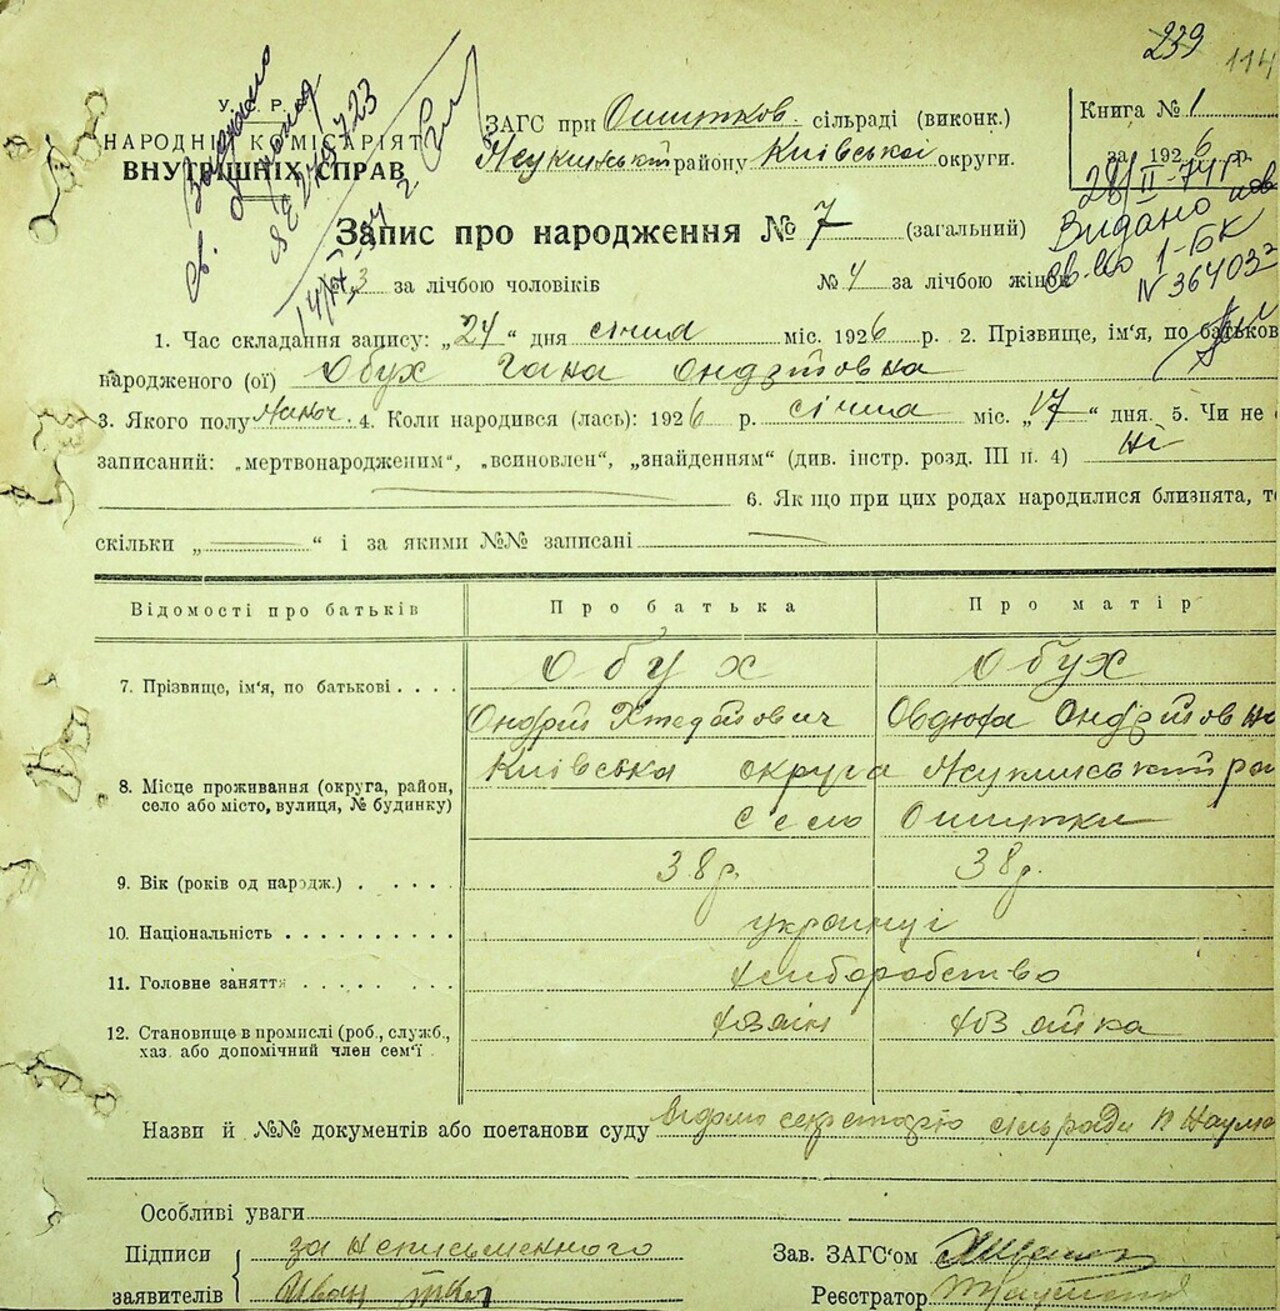 239
114
У. Р.
НАРОДНІЙ КОМІСАРІЯТ
ВНУТРІШНІХ СПРАВ
ЗАГС при Ошитков. сільраді (виконк.)
району Київської округи.
Книга № 1
за 1926 р.
28/II-74
Видано
1-БК
N 364032
Запис про народження № 7 (загальний)
3 за лічбою чоловіків
№ 4 за лічбою жінок
1. Час складання запису: „24“ дня січня міс. 1926 р. 2. Прізвище, ім'я, по батьков
народженого (ої) Обух Гана Ондріївна
3. Якого полу жіноч. 4. Коли народився (лась): 1926 р. січня міс. „17“ дня. 5. Чи не
записаний: „мертвонародженим“, „всиновлен“, „знайденням“ (див. інстр. розд. III п. 4) ні
6. Як що при цих родах народилися близнята, то
скільки „ “ і за якими №№ записані
Відомості про батьків
Про батька
Про матір
7. Прізвище, ім'я, по батькові
Обух
Обух
Овдюха
8. Місце проживання (округа, район,
село або місто, вулиця, № будинку)
Київська округа
село Ошитки
9. Вік (років од народж.)
38 р.
38 р.
10. Національність
українці
11. Головне заняття
хліборобство
12. Становище в промислі (роб., служб.,
хаз. або допомічний член сем'ї
хозяін
хозяйка
Назви й №№ документів або постанови суду відомо секретарю сільради
Особливі уваги
Підписи
заявителів
за неписьменного
Иван
Зав. ЗАГС'ом
Реєстратор